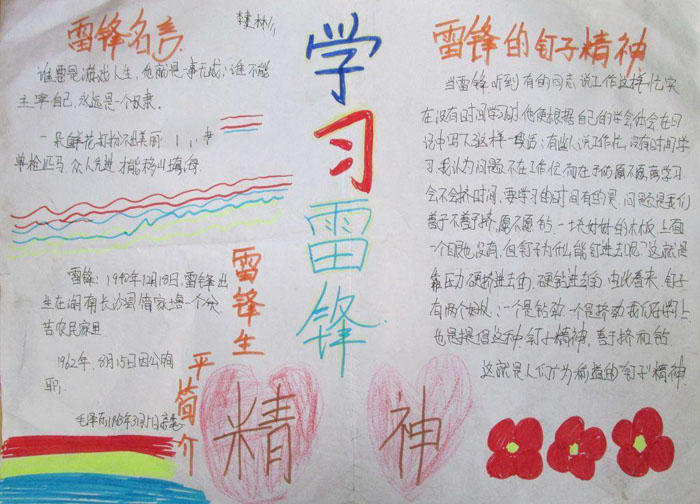 雷锋名言
谁要是游戏人生，他就是一事无成；谁不能
主宰自己，永远是一个奴隶。
一朵鲜花打扮不出美丽
单枪匹马 众人先进才能移山填海
学习雷锋
精神
雷锋生
平简介
雷锋：1940年12月18日，雷锋出
生在湖南长沙
苦农民家里
1962年，8月15日因公殉
职，
毛泽东1963年3月5日亲笔
雷锋的钉子精神
当雷锋听到有的同志说工作这样忙实
在没有时间学习时他便根据自己的学会体会在日
记中写下这样一段话：有些人说工作忙，没有时间学
习，我认为问题不在工作忙而在于你愿不愿意学习
会不会挤时间，要学习的时间有的是，问题是我们
善于不善于挤，愿不愿钻，一块好好的木板，上面
一个眼也没有，但钉子为什么能钉进去呢？这就是
靠压力硬挤进去的，硬钻进去的，由此看来，钉子
有两个好处：一个是钻劲 一个是挤劲 我们在学习上
也是提倡这种"钉子"精神，善于挤和钻，
这就是人们广为称道的"钉子"精神